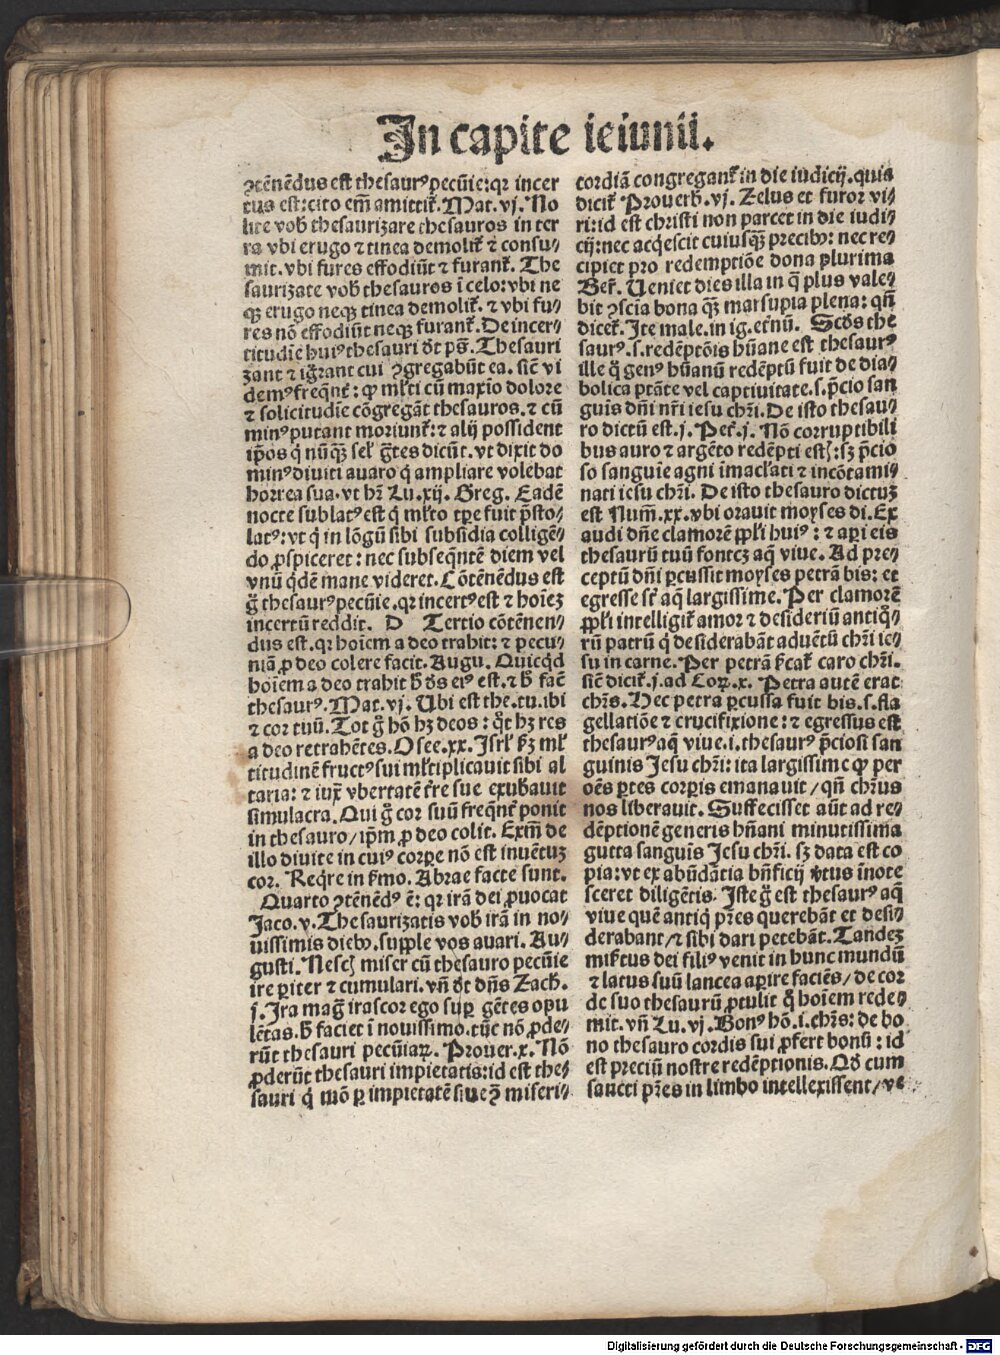 In capite ieiunii.
ꝯtēnēdus est thesaurꝰ pecūie: qꝛ incer
tus est: cito em̄ amittit᷑. Mat. vj. No
lite vob̕ thesaurizare thesauros in ter
ra vbi erugo ⁊ tinea demolit᷑ ⁊ consu⸗
mit. vbi fures effodiūt ⁊ furant᷑. The
saurizate vob̕ thesauros ī celo: vbi ne
qꝫ erugo neqꝫ tinea demolit᷑. ⁊ vbi fu⸗
res nō effodiūt neqꝫ furant᷑. De incer⸗
titudīe huiꝰ thesauri dt̄ ps̄. Thesauri
zant ⁊ igr̄ant cui ꝯgregabūt ea. sic̄ vi
demꝰ freq̄nt᷑: ꝙ ml̕ti cū maxīo dolore
⁊ solicitudīe cōgregāt thesauros. ⁊ cū
minꝰ putant moriunt᷑: ⁊ alij possident
ip̄os q̇ nūqꝫ sel̕ ḡtes dicūt. vt dixit do
minꝰ diuiti auaro q̇ ampliare volebat
horrea sua. vt hr̄ Lu. xij. Greg. Eadē
nocte sublatꝰ est q̇ ml̕to tꝑe fuit p̄sto⸗
latꝰ: vt q̇ in lōgū sibi subsidia colligē⸗
do ꝓspiceret: nec subseq̄ntē diem vel
vnū q̇dē mane videret. Cōtēnēdus est
g̊ thesaurꝰ pecūie. qꝛ incertꝰ est ⁊ hoīeꝫ
incertū reddit. D Tertio cōtēnen⸗
dus est. qꝛ hoīem a deo trahit: ⁊ pecu⸗
niā ꝓ deo colere facit. Augu. Quicq̇d
hoīem a deo trahit h̄ ds̄ eiꝰ est. ⁊ h̄ facē
thesaurꝰ. Mat. vj. Ubi est the. tu. ibi
⁊ cor tuū. Tot g̊ hō hꝫ deos: qt̊ hꝫ res
a deo retrahētes. Osee. xx. Isrl̕ ẜꝫ ml̕
titudinē fructꝰ sui ml̕tiplicauit sibi al
taria: ⁊ iuxͣ vbertatē tr̄e sue exubauit
simulacra. Qui g̊ cor suū freq̄nt᷑ ponit
in thesauro/ ip̄m ꝓ deo colit. Exm̄ de
illo diuite in cuiꝰ corꝑe nō est inuētuꝫ
cor. Req̇re in ẜmo. Abrae facte sunt.
Quarto ꝯtēnēdꝰ ē: qꝛ irā dei ꝓuocat
Jaco. v. Thesaurizatis vob̕ irā in no⸗
uissimis dieb⁹. supple vos auari. Au⸗
gusti. Nescis miser cū thesauro pecūie
ire ꝑiter ⁊ cumulari. vn̄ dt̄ dn̄s Zach.
j. Ira maḡ irascor ego suꝑ gētes opu
lētas. h̄ faciet ī nouissimo. tūc nō ꝓde⸗
rūt thesauri pecūiaꝝ. Prouer. x. Nō
ꝓderūt thesauri impietatis: id est the⸗
sauri q̇ nō ꝑ impietatē siue ꝯͣ miseri⸗
cordiā congregant᷑ in die iudicij. quia
dicit᷑ Prouerb. vj. Zelus et furor vi⸗
ri: id est christi non parcet in die iudi⸗
cij: nec acq̇escit cuiusqꝫ precib⁹: nec re⸗
cipiet pro redemptiōe dona plurima
Ber̄. Ueniet dies illa in qͣ plus vale⸗
bit ꝯscīa bona qͣꝫ marsupia plena: qn̄
dicet᷑. Ite male. in ig. et̄nū. Scd̄s the
saurꝰ. s. redēptōis hūane est thesaurꝰ
ille q̇ genꝰ hūanū redēptū fuit de dia⸗
bolica ptāte vel captiuitate. s. p̄cio san
guis dn̄i nr̄i iesu chr̄i. De isto thesau⸗
ro dictū est. j. Pet᷑. j. Nō corruptibili
bus auro ⁊ argēto redēpti estis: sꝫ p̄cio
so sanguīe agni īmacl̕ati ⁊ incōtami⸗
nati iesu chr̄i. De isto thesauro dictuꝫ
est Num̄. xx. vbi orauit moyses di. Ex
audi dn̄e clamorē ppl̕i huiꝰ: ⁊ aꝑi eis
thesaurū tuū fonteꝫ aq̄ viue. Ad pre⸗
ceptū dn̄i ꝑcussit moyses petrā bis: et
egresse st̄ aq̄ largissime. Per clamorē
ppl̕i intelligit᷑ amor ⁊ desideriū antiqͦ⸗
rū patrū q̇ desiderabāt aduētū chr̄i ie⸗
su in carne. Per petrā ẜcat᷑ caro chr̄i.
sic̄ dicit᷑. j. ad Coꝝ. x. Petra autē erat
chr̄s. Hec petra ꝑcussa fuit bis. s. fla
gellatiōe ⁊ crucifixione: ⁊ egressus est
thesaurꝰ aq̄ viue. i. thesaurꝰ p̄ciosi san
guinis Jesu chr̄i: ita largissime ꝙ per
oēs ꝑtes corꝑis emanauit/ qn̄ chr̄us
nos liberauit. Suffecisset aūt ad re⸗
dēptionē generis hūani minutissima
gutta sanguīs Jesu chr̄i. sꝫ data est co
pia: vt ex abūdātia bn̄ficij v̕tus īnote
sceret diligētis. Iste g̊ est thesaurꝰ aq̄
viue quē antiq̇ pr̄es querebāt et desi⸗
derabant/ ⁊ sibi dari petebāt. Tandeꝫ
mit᷑tus dei filiꝰ venit in hunc mundū
⁊ latus suū lancea aꝑire faciēs/ de cor
de suo thesaurū ꝓtulit q̊ hoīem rede⸗
mit. vn̄ Lu. vj. Bonꝰ hō. i. chr̄s: de bo
no thesauro cordis sui ꝓfert bonū: id
est preciū nostre redēptionis. Qd̄ cum
sancti pr̄es in limbo intellexissent/ ve
Digitalisierung gefördert durch die Deutsche Forschungsgemeinschaft - DFG